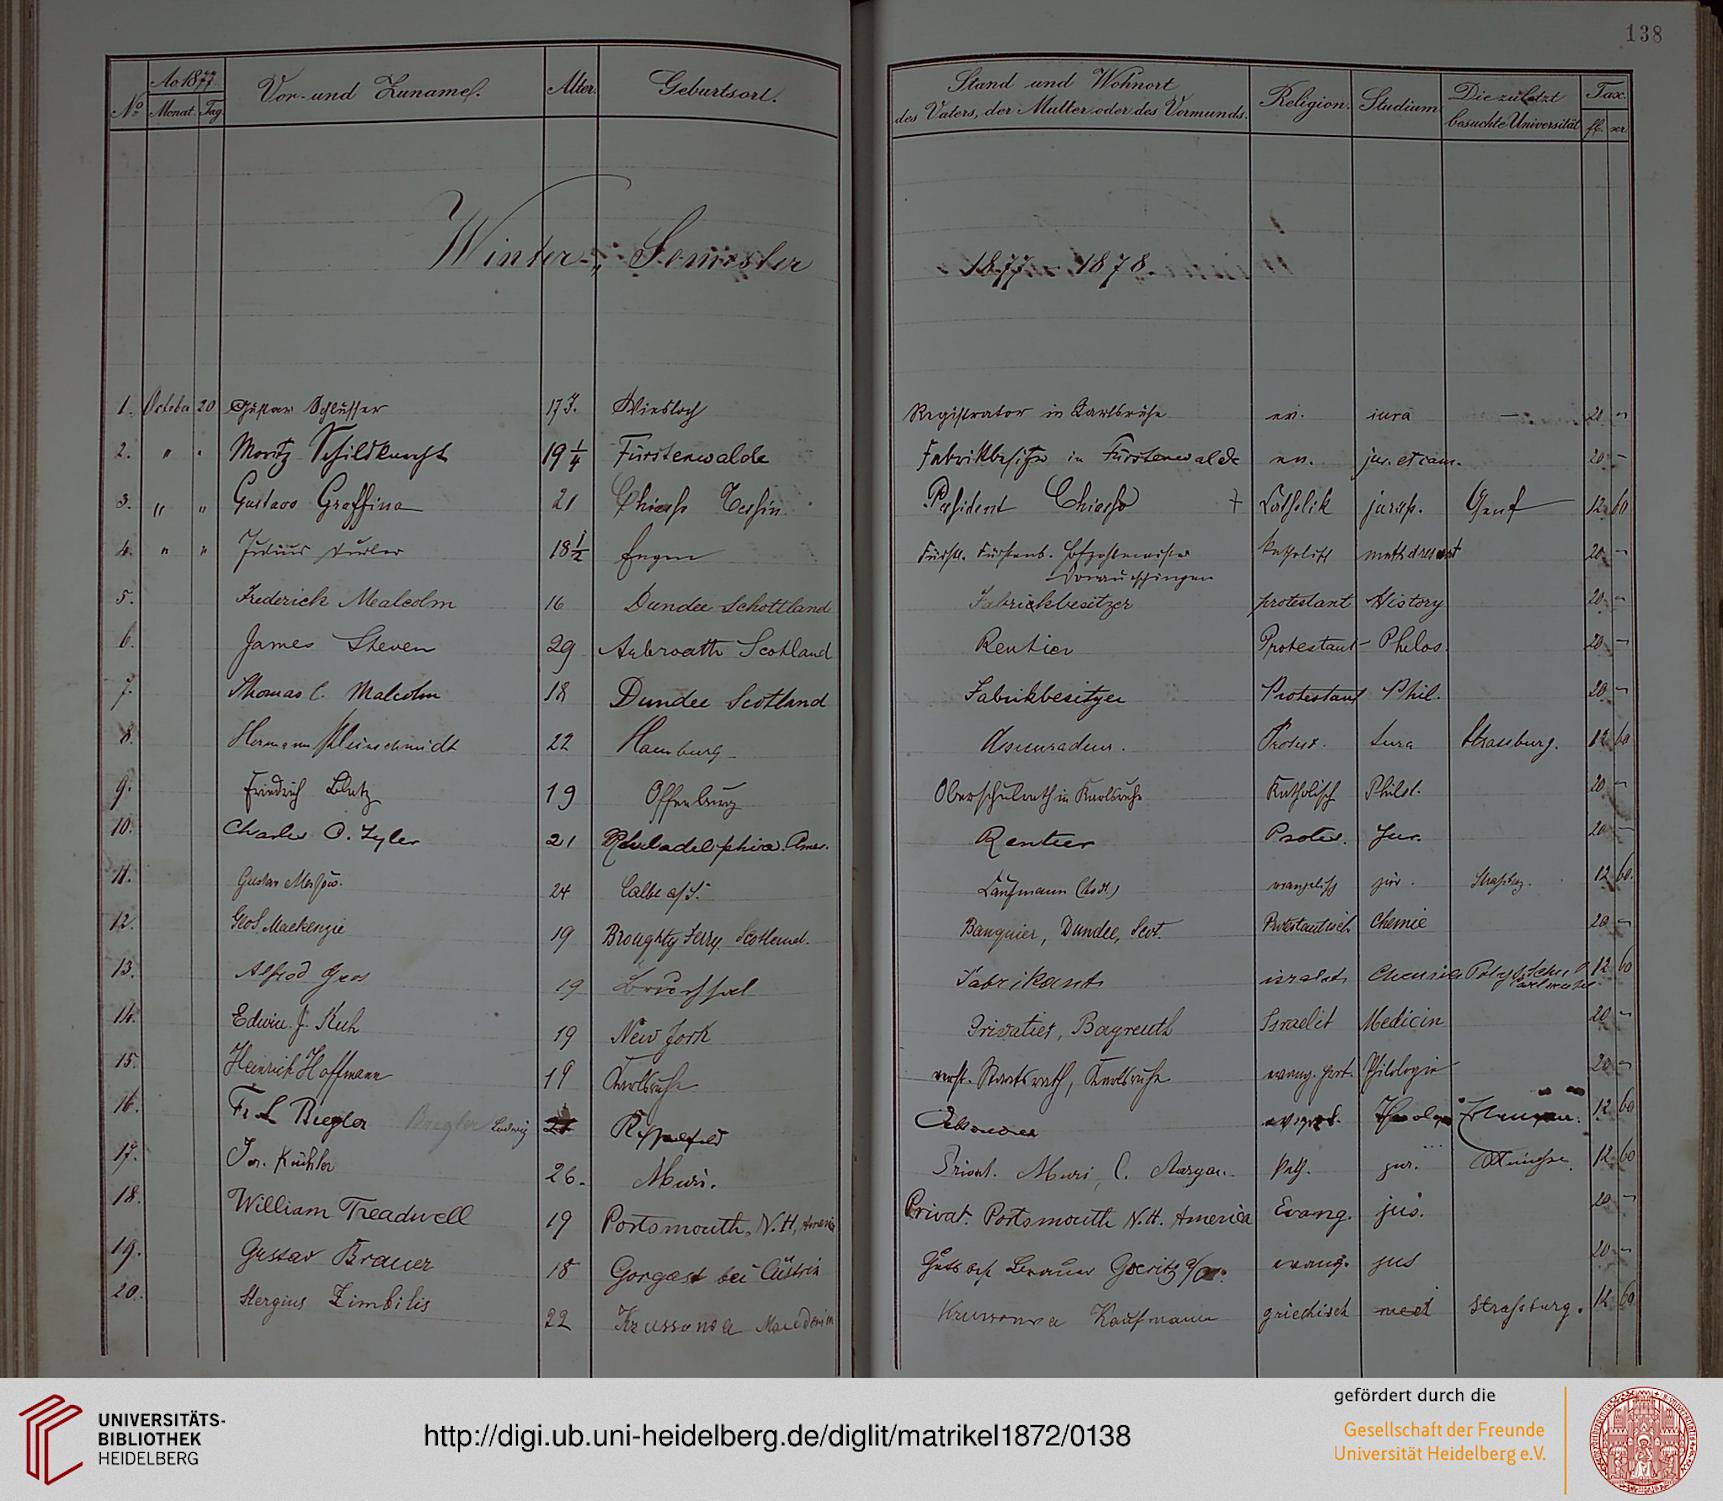 138
Ao 1877
No Monat. Tag. Vor- und Zuname. Alter. Geburtsort. Stand und Wohnort des Vaters, der Mutter oder des Vormunds. Religion. Studium Die zuletzt besuchte Universität Tax. fl. xr.
Winter-Semester 1877-1878.
1. October 20 Gustav Schlusser 17 3. Wiesloch Registrator in Karlsruhe ev. iura — 20 -
2. " " Moritz Schildknecht 19 1/4 Fürstenwalde Fabrikbesitzer in Fürstenwalde ev. jur. et cam. 20 -
3. " " Gustavo Graffina 21 Chiasso Tessin Präsident Chiasso + Katholik jurisp. Genf 12 60
4. " " Julius 18 1/2 Engen Fürstl. Fürstenb. Donaueschingen katholisch 20 -
5. Frederick Mealcolm 16 Dundee Schottland Fabrickbesitzer protestant History 20 -
6. James Steven 29 Arbroath Scotland Rentier Protestant Philos. 20 -
7. Thomas C. Malcolm 18 Dundee Scotland Fabrikbesitzer Protestant Phil. 20 -
8. Hermann Kleinschmidt 22 Hamburg Assecuradeur. Protest. Iura Strassburg. 12 60
9. Friedrich Blatz 19 Offenburg Oberschulrath in Karlsruhe Katholisch Philol. 20 -
10. Charles O. Tyler 21 Philadelphia. Amer. Rentier Protes. Jur. 20 -
11. Gustav 24 Calbe a/S. Kaufmann (todt) evangelisch jur. Straßbg. 12 60.
12. Geo S. Mackenzie 19 Broughty Ferry Scotland. Banquier, Dundee, Scot. Protestantisch Chemie 20 -
13. Alfred Gros 19 Bruchsal Fabrikant israelit. Chemie Karlsruhe 12 60
14. Edwin J. Kuh 19 New York Privatier, Bayreuth Israelit Medicin 20 -
15. Heinrich Hoffmann 19 Karlsruhe verst. Staatsrath, Karlsruhe evang. prot. Philologie 20 -
16. Fr. L. Biegler Ludwig Oekonom Theolog Erlangen. 12 60
17. Jos. Küchler 26. Muri. Privat. Muri, C. Aargau kath. jur. München. 12 60
18. William Treadwell 19 Portsmouth, N. H, America Privat. Portsmouth N. H. America Evang. jus. 20 -
19. Gustav Brauer 18 Gorgast bei Cüstrin Gutsbes. Brauer Goeritz a/O. evang. jus 20 -
20. Stergius Zimbilis 22 Krussowa Macedonien Krussowa Kaufmann griechisch med Straßburg. 12 60
UNIVERSITÄTS-
BIBLIOTHEK
HEIDELBERG
http://digi.ub.uni-heidelberg.de/diglit/matrikel1872/0138
gefördert durch die
Gesellschaft der Freunde
Universität Heidelberg e.V.